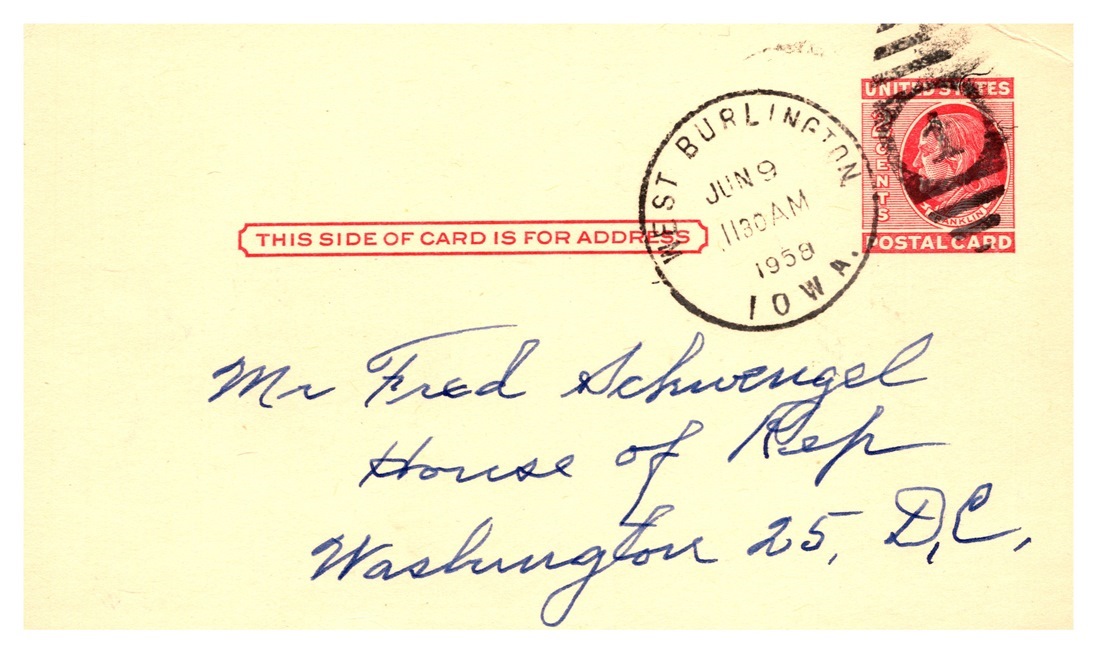 UNITED STATES
2 CENTS
FRANKLIN
POSTAL CARD
1
WEST BURLINGTON
JUN 9
1130 AM
1958
IOWA.
THIS SIDE OF CARD IS FOR ADDRESS
Mr Fred Schwengel
House of Rep
Washington 25, D.C.